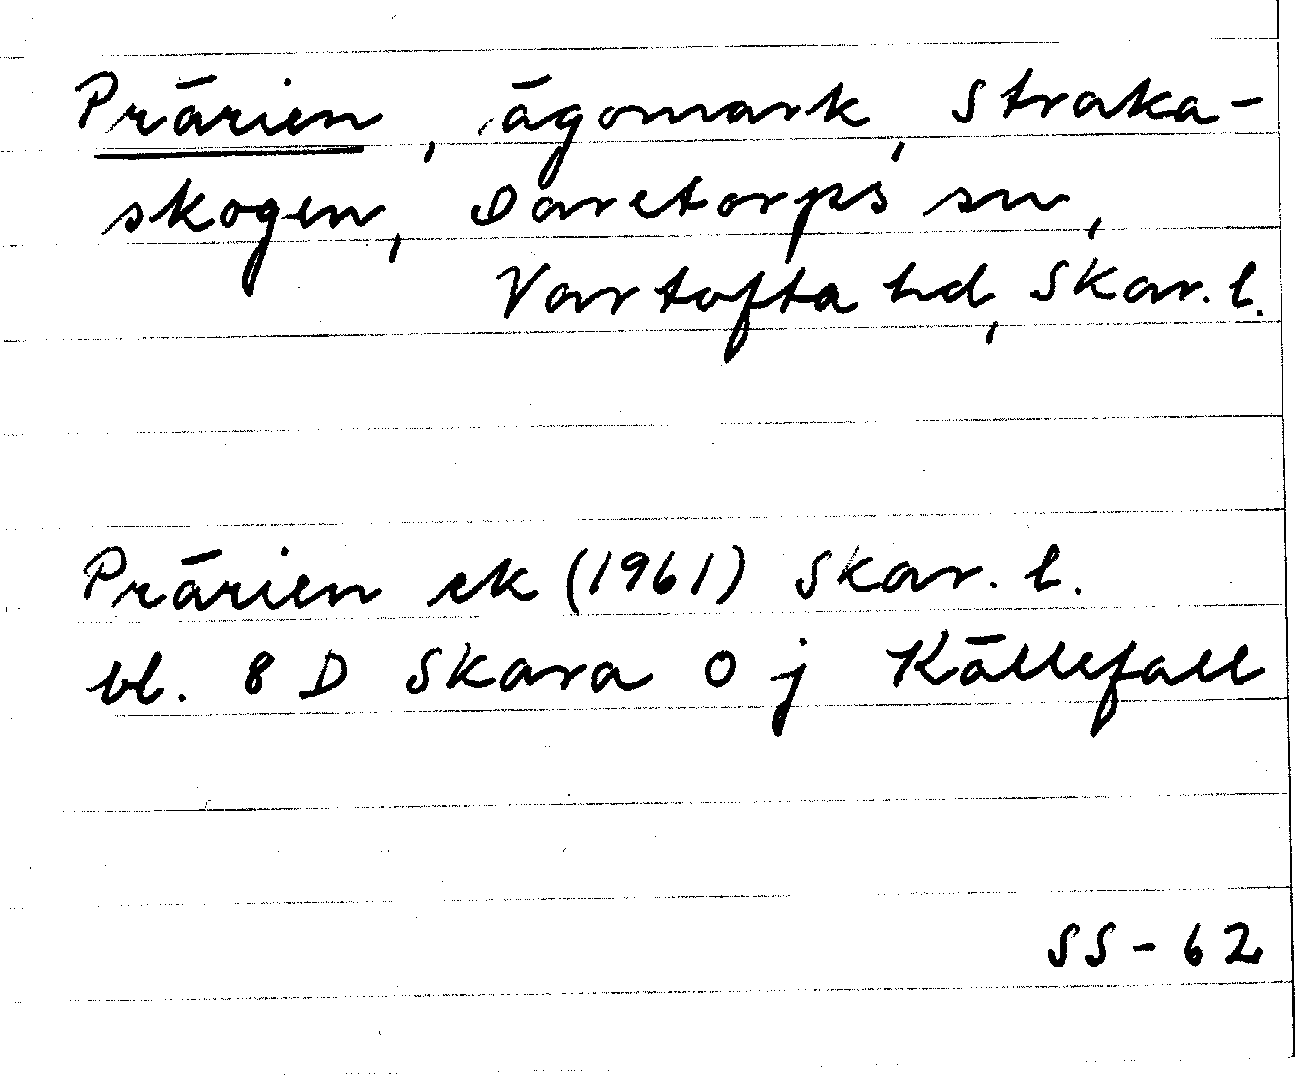 Prärien, ägomark, Straka-
skogen, Daretorps sn,
Vartofta hd, Skar. l.
Prärien ek (1961) Skar. l.
bl. 8 D Skara 0 j Källefall
SS-62